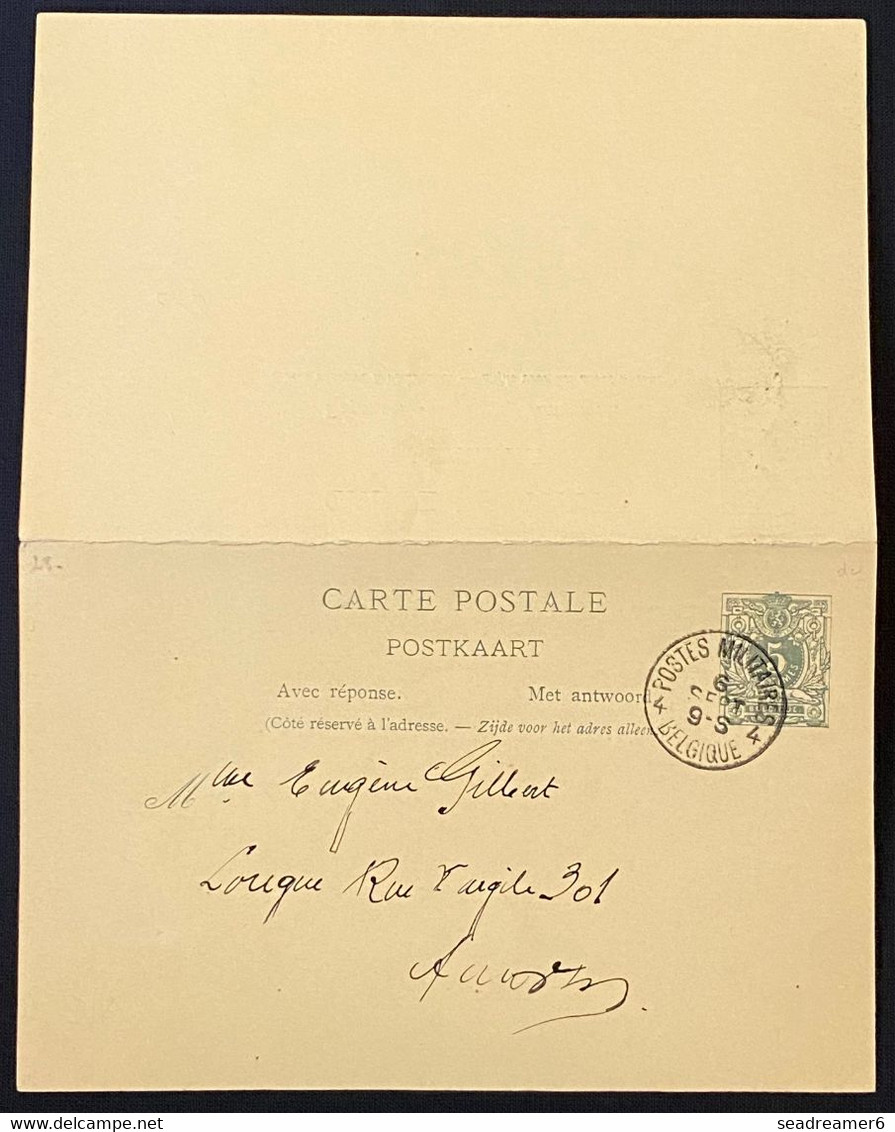 28-
CARTE POSTALE
POSTKAART
Avec réponse. Met antwoord
(Côté réservé à l'adresse. — Zijde voor het adres alleen.
5
POSTES MILITAIRES
6
SEPT
9-S
4 BELGIQUE 4
Mme Eugène Gilbert
Longue Rue d'argile 301
Anvers
http://www.delcampe.net
seadreamer6